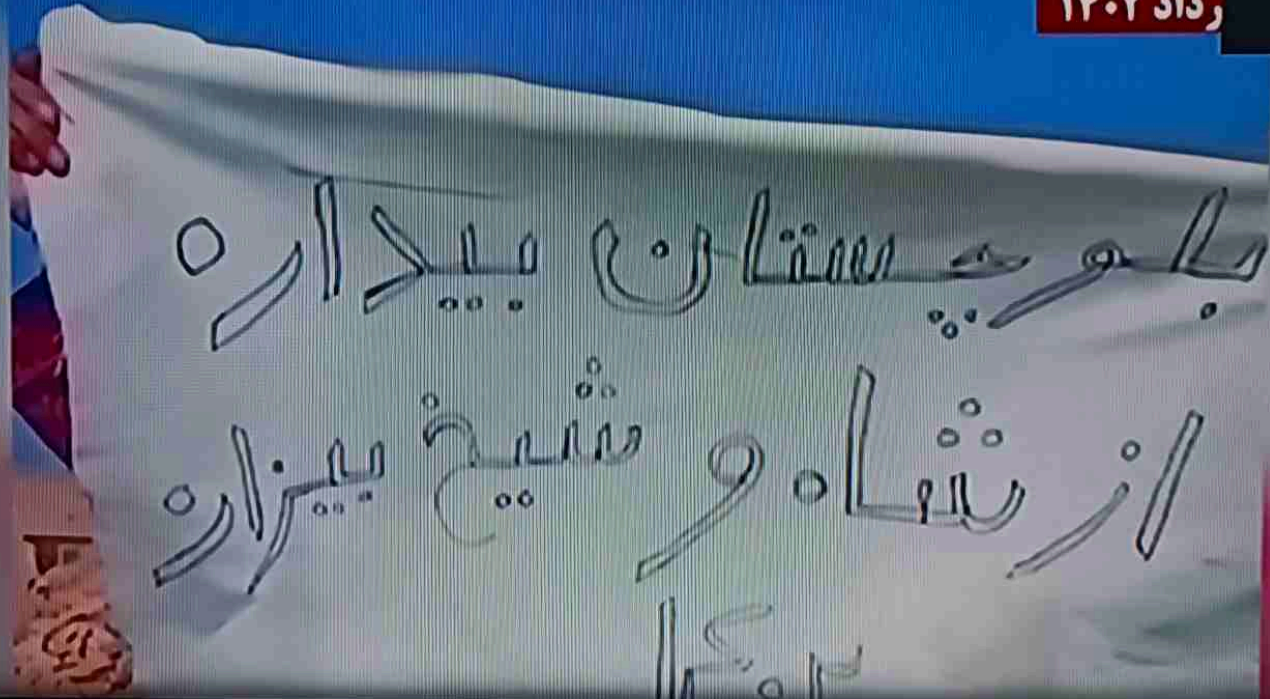 رداد ۱۴۰۲
بلوچستان بیداره
از شاه و شیخ بیزاره